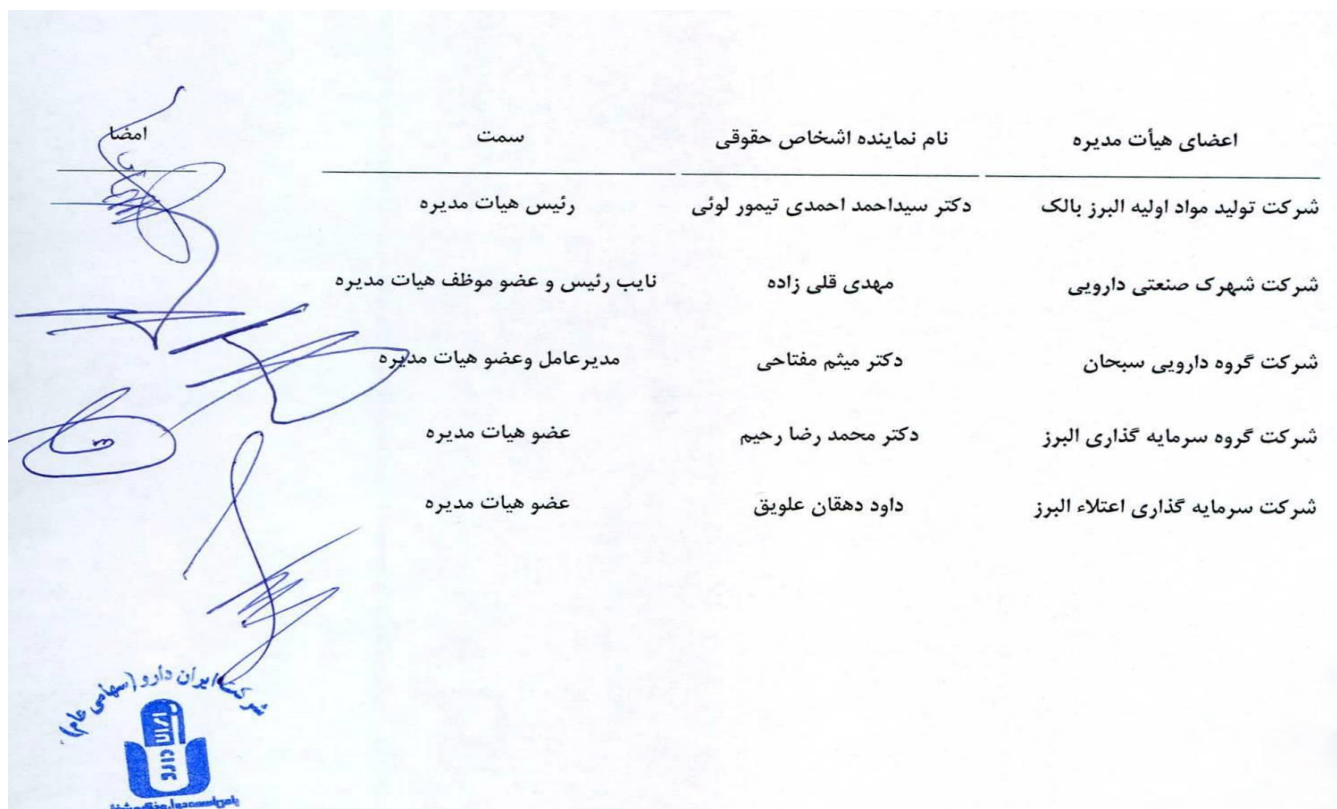 اعضای هیأت مدیره نام نماینده اشخاص حقوقی سمت امضا
شرکت تولید مواد اولیه البرز بالک دکتر سیداحمد احمدی تیمور لوئی رئیس هیات مدیره
شرکت شهرک صنعتی دارویی مهدی قلی زاده نایب رئیس و عضو موظف هیات مدیره
شرکت گروه دارویی سبحان دکتر میثم مفتاحی مدیرعامل وعضو هیات مدیره
شرکت گروه سرمایه گذاری البرز دکتر محمد رضا رحیم عضو هیات مدیره
شرکت سرمایه گذاری اعتلاء البرز داود دهقان علویق عضو هیات مدیره
شرکت ایران دارو (سهامی عام)
ایران
دارو